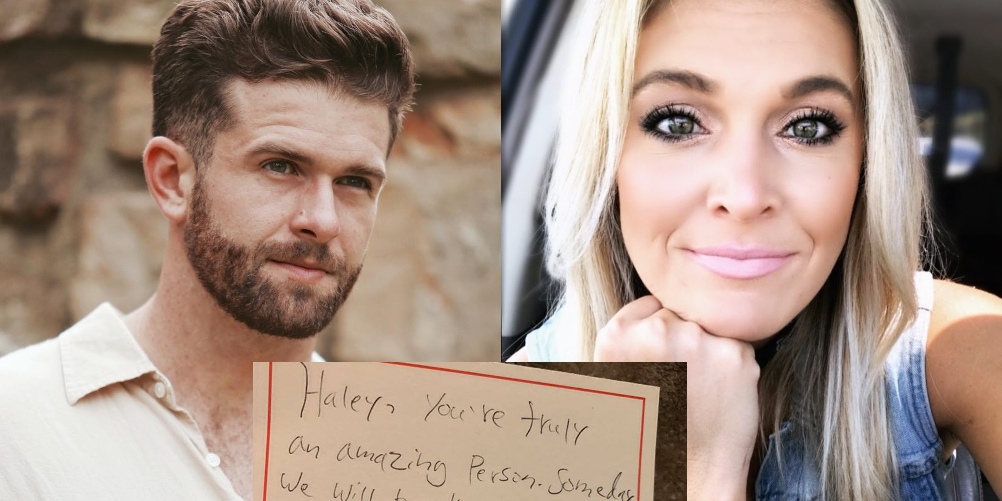 Haley, You're truly
an amazing Person. Someday
we will